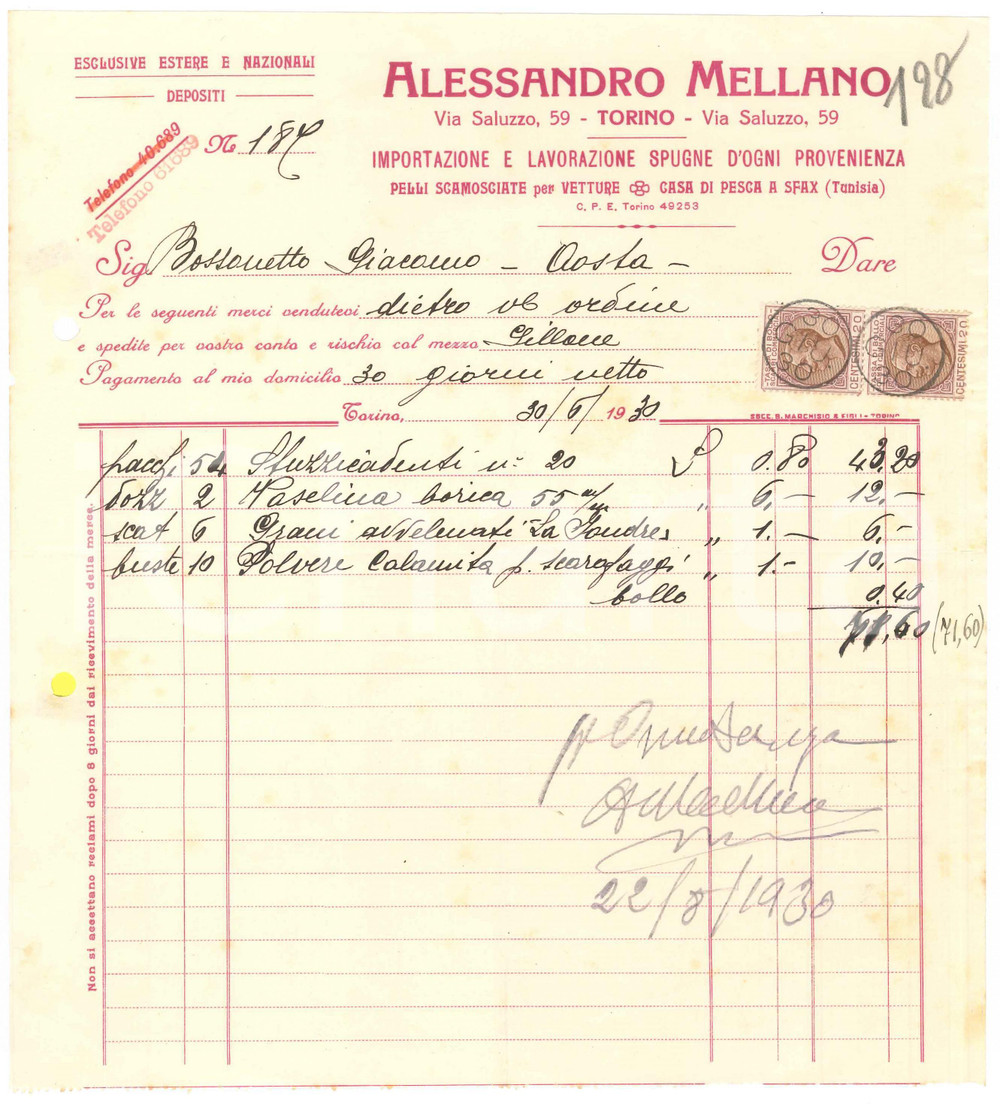 ESCLUSIVE ESTERE E NAZIONALI
DEPOSITI
Telefono 49.689
Telefono 61689
No 187
ALESSANDRO MELLANO
198
Via Saluzzo, 59 - TORINO - Via Saluzzo, 59
IMPORTAZIONE E LAVORAZIONE SPUGNE D'OGNI PROVENIENZA
PELLI SCAMOSCIATE per VETTURE CASA DI PESCA A SFAX (Tunisia)
C. P. E. Torino 49253
Sig Bossonetto Giacomo - Aosta - Dare
Per le seguenti merci vendutevi dietro vs ordine
e spedite per vostro conto e rischio col mezzo Gillone
Pagamento al mio domicilio 30 giorni netto
Torino, 30/6/1930
SOCC. B. MARCHISIO & FIGLI - TORINO
CENTESIMI 50
CENTESIMI 50
pacchi 54 Stuzzicadenti n. 20 £ 0.80 43,20
dozz 2 Vaselina borica 55 m/m " 6.- 12.-
scat 6 Grani avvelenati La " 1.- 6.-
buste 10 Polvere Calamita p. scarafaggi " 1.- 10.-
bollo 0.40
71,60 (71,60)
Non si accettano reclami dopo 8 giorni dal ricevimento della merce.
p Quietanza
AMellano
22/8/1930